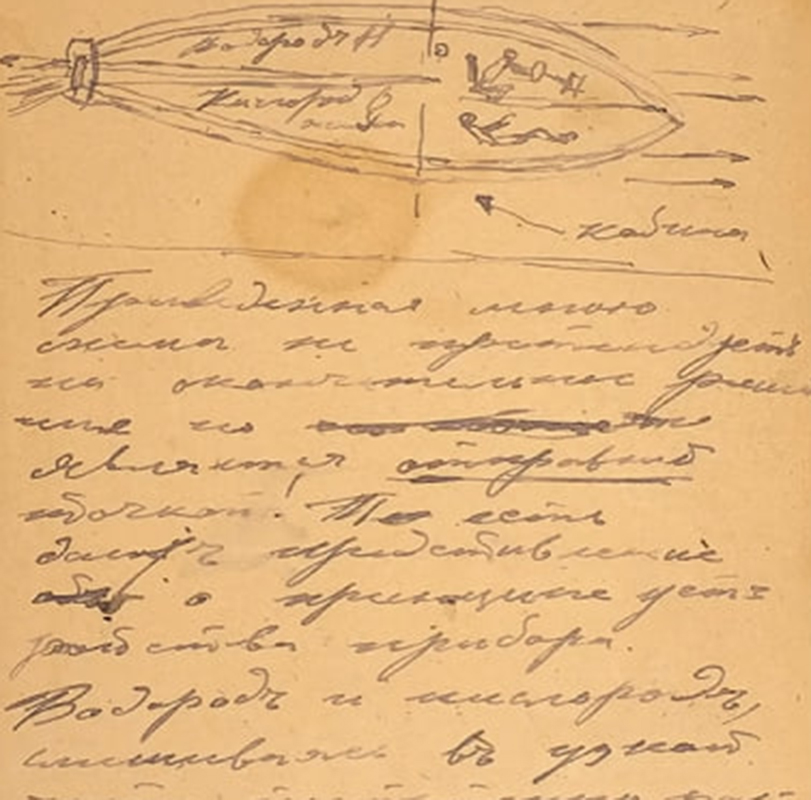 Водородъ H
Кислород
кабина
Приведенная мною
схема не претендуетъ
на окончательное реше
ние но
является отправной
точкой! То есть
даетъ представление
о принципе уст=
ройства прибора.
Водородъ и кислородъ,
смешиваясь въ узкой